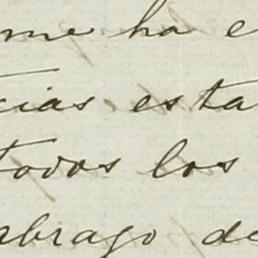 me ha e
cias esta
todos los
abrazo de